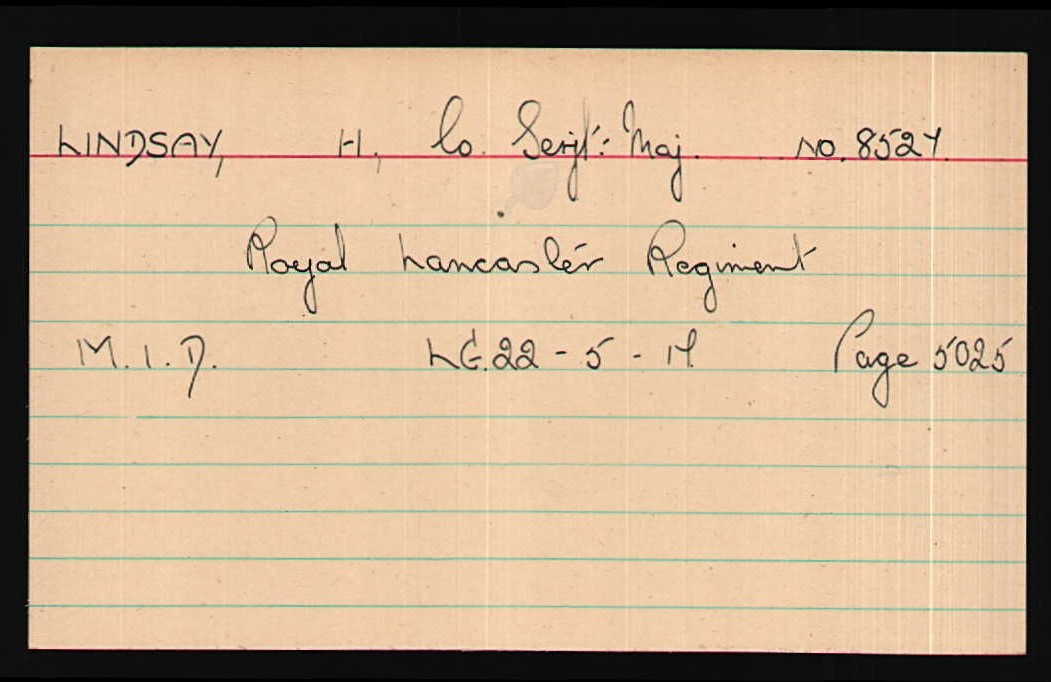 LINDSAY, H., Co. Serjt: Maj. No. 8527.
Royal Lancaster Regiment
M.I.D. LG. 22-5-17. Page 5025